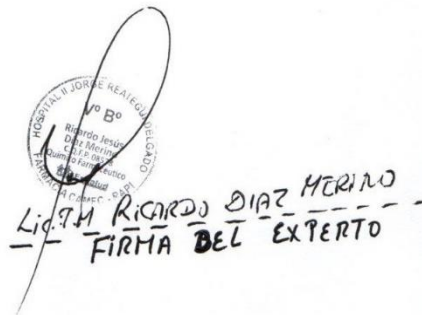 HOSPITAL II JORGE REATEGUI DELGADO
V° B°
Ricardo Jesús
Diaz Merino
Químico Farmacéutico
EsSalud
FARMACIA CAMEC - PAPI
Lic. T.M RICARDO DIAZ MERINO
FIRMA DEL EXPERTO